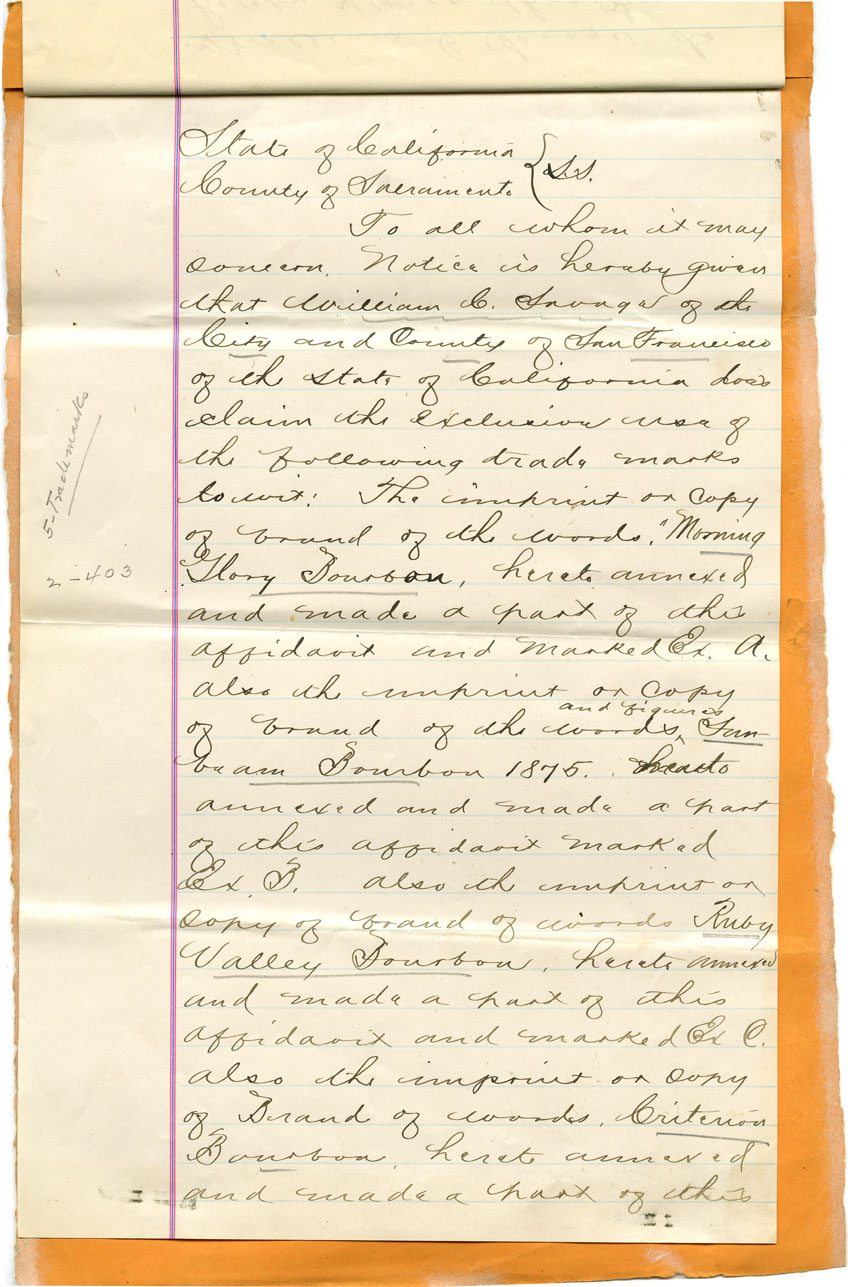 State of California
County of Sacramento } S.S.
To all whom it may
concern. Notice is hereby given
that William C. Savage of the
City and County of San Francisco
of the State of California does
claim the exclusive use of
the following trade marks
to wit: The imprint or copy
of brand of the words, "Morning
Glory Bourbon, hereto annexed
and made a part of this
affidavit and marked Ex. A.
also the imprint or copy
and figures
of brand of the words, Sun
beam Bourbon 1875. hereto
annexed and made a part
of this affidavit marked
Ex. B. also the imprint or
copy of brand of words Ruby
Valley Bourbon, hereto annexed
and made a part of this
affidavit and marked Ex C.
also the imprint or copy
of Brand of words, Criterion
Bourbon, hereto annexed
and made a part of this
5-Trademarks
2-403